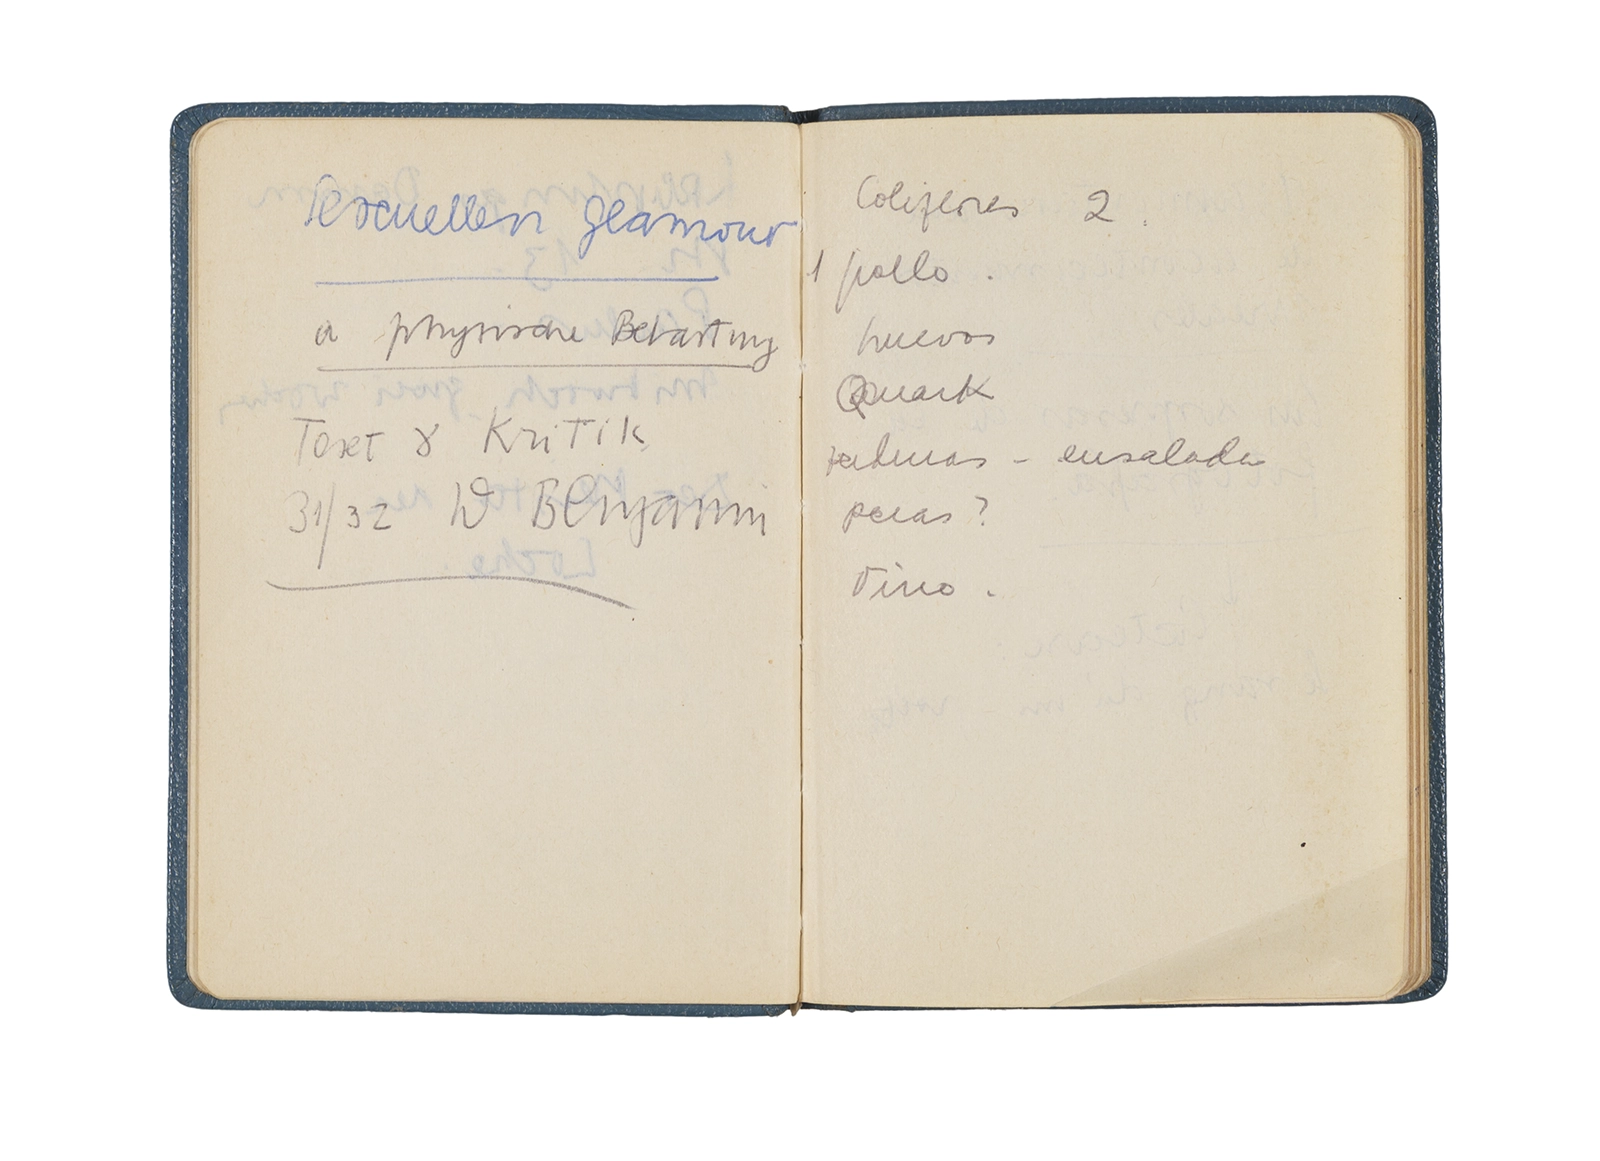 Sexuellen Glamour
a physische Belastung
Text & Kritik
31/32 W Benjamin
Coliflores 2.
1 pollo.
huevos
Quark
ensalada
peras?
vino.